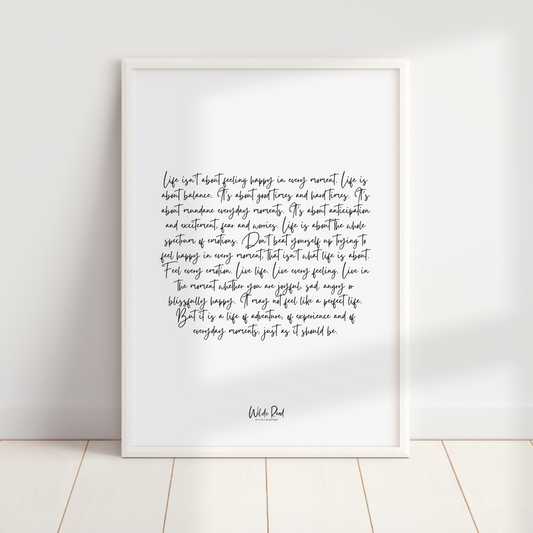 Life isn't about feeling happy in every moment. Life is
about balance. It's about good times and hard times. It's
about mundane everyday moments. It's about anticipation
and excitement, fear and worries. Life is about the whole
spectrum of emotions. Don't beat yourself up trying to
feel happy in every moment, that isn't what life is about.
Feel every emotion. Live life. Live every feeling. Live in
the moment whether you are joyful, sad, angry or
blissfully happy. It may not feel like a perfect life.
But it is a life of adventure, of experience and of
everyday moments, just as it should be.
Wilde Road